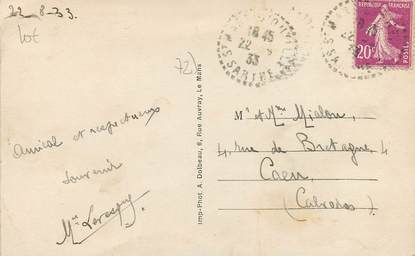 22-8-33
lot
72)
18 45
22 - 8
33
SARTHE
REPUBLIQUE FRANÇAISE
20c
POSTES
Amical et respectueux
souvenir
Imp-Phot. A. Dolbeau, 6, Rue Auvray, Le Mans
Mr et Mme Mialon,
4, rue de Bretagne, 4
Caen,
(Calvados)